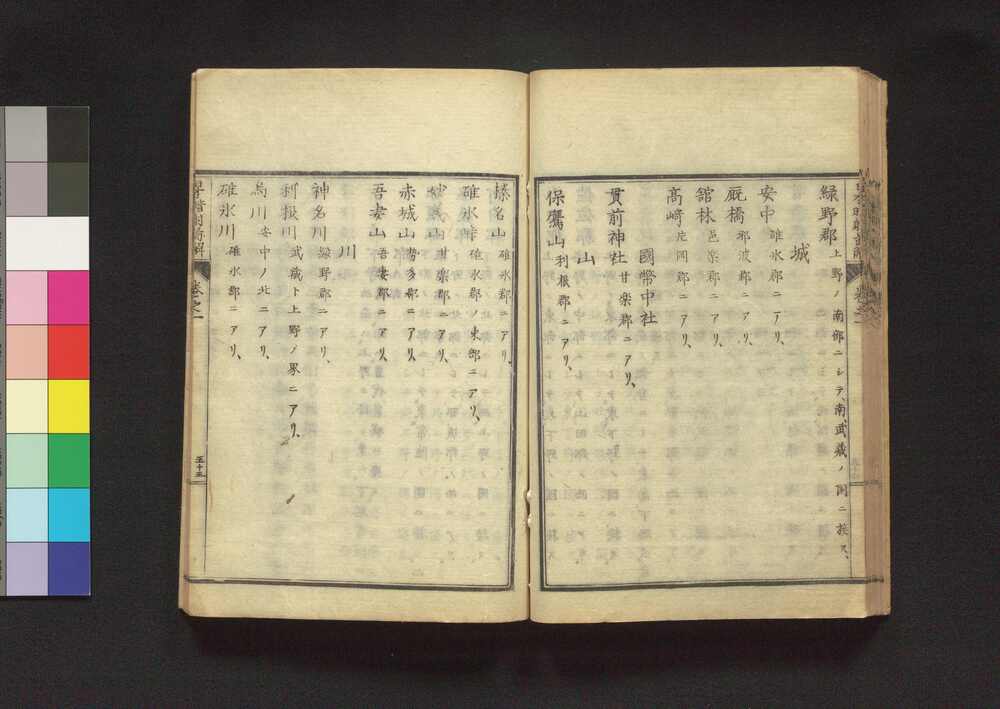 緑野郡 上野ノ南部ニシテ、南武蔵ノ閒ニ挨ス、
城
安中 碓氷郡ニアリ、
厩橋 那波郡ニアリ、
舘林 邑楽郡ニアリ、
髙崎 片岡郡ニアリ、
國幣中社
貫前神社 甘楽郡ニアリ、
山
保鷹山 利根郡ニアリ、
榛名山 碓氷郡ニアリ、
碓氷峠 碓氷郡ノ東部ニアリ、
妙義山 甘楽郡ニアリ、
赤城山 勢多郡ニアリ、
吾妻山 吾妻郡ニアリ、
川
神名川 緑野郡ニアリ、
利根川 武蔵ト上野ノ界ニアリ、
烏川 安中ノ北ニアリ、
碓氷川 碓氷郡ニアリ、
卷之一
五十三